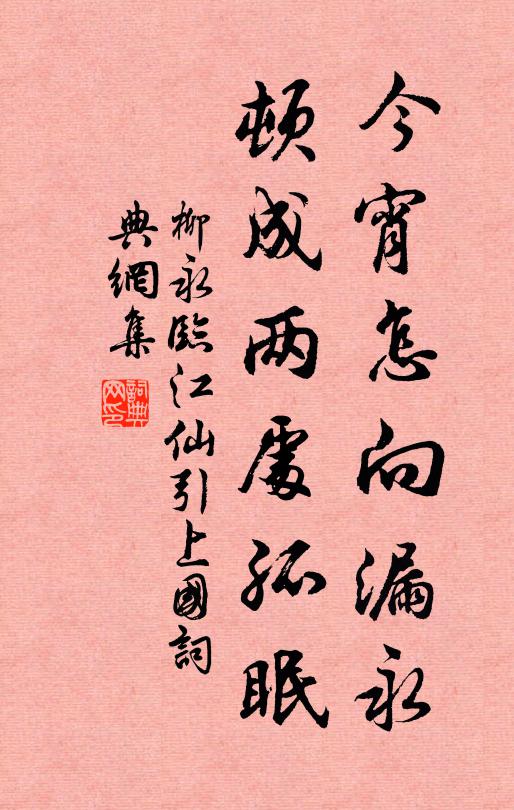 今宵怎向漏永
頓成两處孤眠
柳永臨江仙引上國詞
典網集
詞典网印